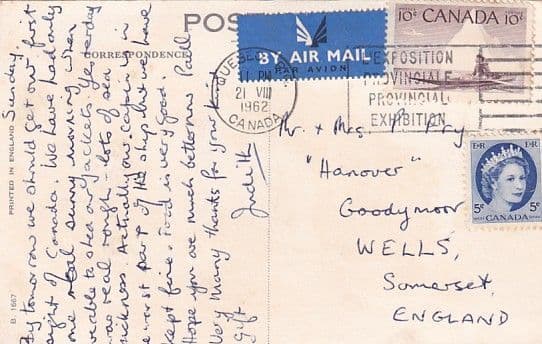 POS
CORRESPONDENCE
PRINTED IN ENGLAND
B. 1667
Sunday.
By tomorrow we should get our first
sight of Canada. We have had only
one real sunny morning when
we able to shed our jackets. Yesterday
was real rough - lots of sea
sickness. Actually our cabin is in
the worst part of the ship but we have
kept fine. Food is very good.
Hope you are much better now Paddy
Very many thanks for your kind
gift.
Judith
BY AIR MAIL
PAR AVION
QUEBEC
11 PM
21 VIII
1962
CANADA
EXPOSITION
PROVINCIALE
PROVINCIAL
EXHIBITION
10¢ CANADA 10¢
EIIR EIIR
5¢ 5¢
CANADA
Mr. + Mrs. Pry
"Hanover"
Goodymoor
WELLS,
Somerset,
ENGLAND